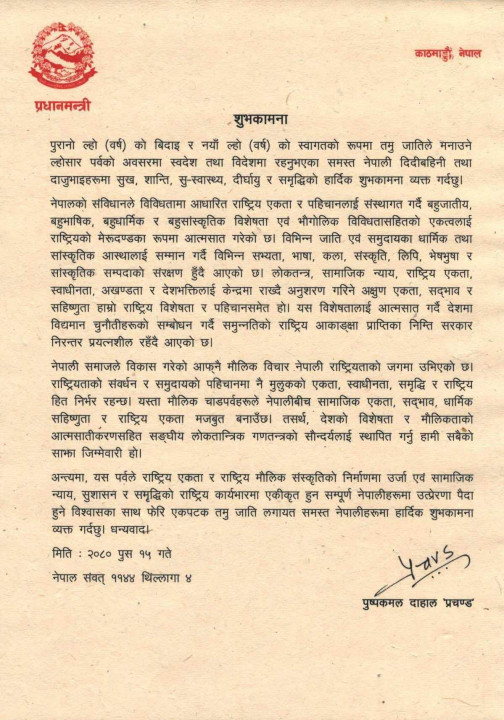 काठमाडौं, नेपाल
प्रधानमन्त्री
शुभकामना
पुरानो ल्हो (वर्ष) को बिदाइ र नयाँ ल्हो (वर्ष) को स्वागतको रूपमा तमु जातिले मनाउने
ल्होसार पर्वको अवसरमा स्वदेश तथा विदेशमा रहनुभएका समस्त नेपाली दिदीबहिनी तथा
दाजुभाइहरूमा सुख, शान्ति, सु-स्वास्थ्य, दीर्घायु र समृद्धिको हार्दिक शुभकामना व्यक्त गर्दछु।
नेपालको संविधानले विविधतामा आधारित राष्ट्रिय एकता र पहिचानलाई संस्थागत गर्दै बहुजातीय,
बहुभाषिक, बहुधार्मिक र बहुसांस्कृतिक विशेषता एवं भौगोलिक विविधतासहितको एकत्वलाई
राष्ट्रियको मेरूदण्डका रूपमा आत्मसात गरेको छ। विभिन्न जाति एवं समुदायका धार्मिक तथा
सांस्कृतिक आस्थालाई सम्मान गर्दै विभिन्न सभ्यता, भाषा, कला, संस्कृति, लिपि, भेषभुषा र
सांस्कृतिक सम्पदाको संरक्षण हुँदै आएको छ। लोकतन्त्र, सामाजिक न्याय, राष्ट्रिय एकता,
स्वाधीनता, अखण्डता र देशभक्तिलाई केन्द्रमा राख्दै अनुशरण गरिने अक्षुण एकता, सद्‌भाव र
सहिष्णुता हाम्रो राष्ट्रिय विशेषता र पहिचानसमेत हो। यस विशेषतालाई आत्मसात् गर्दै देशमा
विद्यमान चुनौतीहरूको सम्बोधन गर्दै समुन्नतिको राष्ट्रिय आकाङ्क्षा प्राप्तिका निम्ति सरकार
निरन्तर प्रयत्नशील रहँदै आएको छ।
नेपाली समाजले विकास गरेको आफ्नै मौलिक विचार नेपाली राष्ट्रियताको जगमा उभिएको छ।
राष्ट्रियताको संवर्धन र समुदायको पहिचानमा नै मुलुकको एकता, स्वाधीनता, समृद्धि र राष्ट्रिय
हित निर्भर रहन्छ। यस्ता मौलिक चाडपर्वहरूले नेपालीबीच सामाजिक एकता, सद्‌भाव, धार्मिक
सहिष्णुता र राष्ट्रिय एकता मजबुत बनाउँछ। तसर्थ, देशको विशेषता र मौलिकताको
आत्मसातीकरणसहित सङ्घीय लोकतान्त्रिक गणतन्त्रको सौन्दर्यलाई स्थापित गर्नु हामी सबैको
साझा जिम्मेवारी हो।
अन्त्यमा, यस पर्वले राष्ट्रिय एकता र राष्ट्रिय मौलिक संस्कृतिको निर्माणमा उर्जा एवं सामाजिक
न्याय, सुशासन र समृद्धिको राष्ट्रिय कार्यभारमा एकीकृत हुन सम्पूर्ण नेपालीहरूमा उत्प्रेरणा पैदा
हुने विश्वासका साथ फेरि एकपटक तमु जाति लगायत समस्त नेपालीहरूमा हार्दिक शुभकामना
व्यक्त गर्दछु। धन्यवाद।
मिति : २०८० पुस १५ गते
नेपाल संवत् ११४४ थिंल्लागा ४
पुष्पकमल दाहाल 'प्रचण्ड'